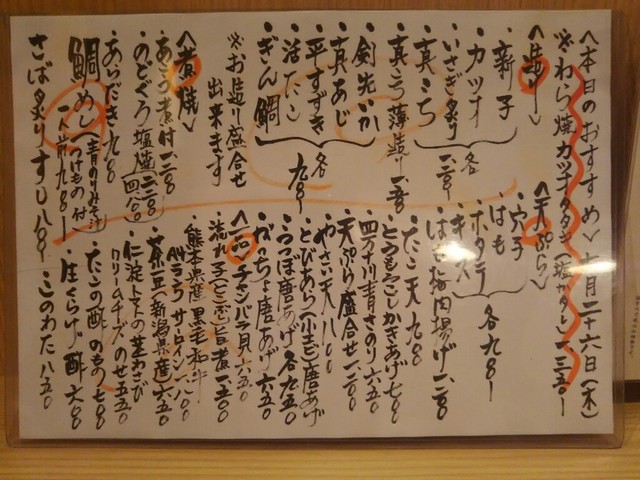 〈本日のおすすめ〉七月二十六日(木)
※わら焼カツオタタキ(塩・タレ)一三五〇
〈造り〉
・新子
・カツオ
・いさぎ炙り
・真こち
各一二〇〇
・真こち薄造り 一五〇〇
・剣先いか
・真あじ
・平すずき
・活たこ
・ぎん鯛
各九八〇
※お造り盛合せ
出来ます
〈煮焼〉
・あこう煮付 一二〇〇
・のどぐろ塩焼
・あらだき 九八〇
鯛めし(青のりみそ汁
つけもの付)
一人前 九八〇
さば炙りすし 八八〇
〈天ぷら〉
・穴子
・はも
・ホタテ
・キス
各九八〇
・はも梅肉揚げ 一二〇〇
・たこ天 九八〇
・とうもろこしかきあげ 七八〇
・四万十川青さのり 六五〇
・天ぷら盛合せ 一二〇〇
・やさい天 八八〇
・とびあら(小えび)唐あげ
・うつぼ唐あげ 各九五〇
・がっちょ唐あげ 六五〇
〈一品〉
・チャンバラ貝 六五〇
・流れ子(とこぶし)旨煮 一五〇〇
・熊本県産黒毛和牛
A4ランクサーロイン 一八〇〇
・茶豆(新潟県産)六五〇
・仁淀トマトの茎わさび
クリームチーズのせ 五五〇
・たこの酢のもの 七八〇
・生くらげ酢 六八〇
・このわた 八五〇